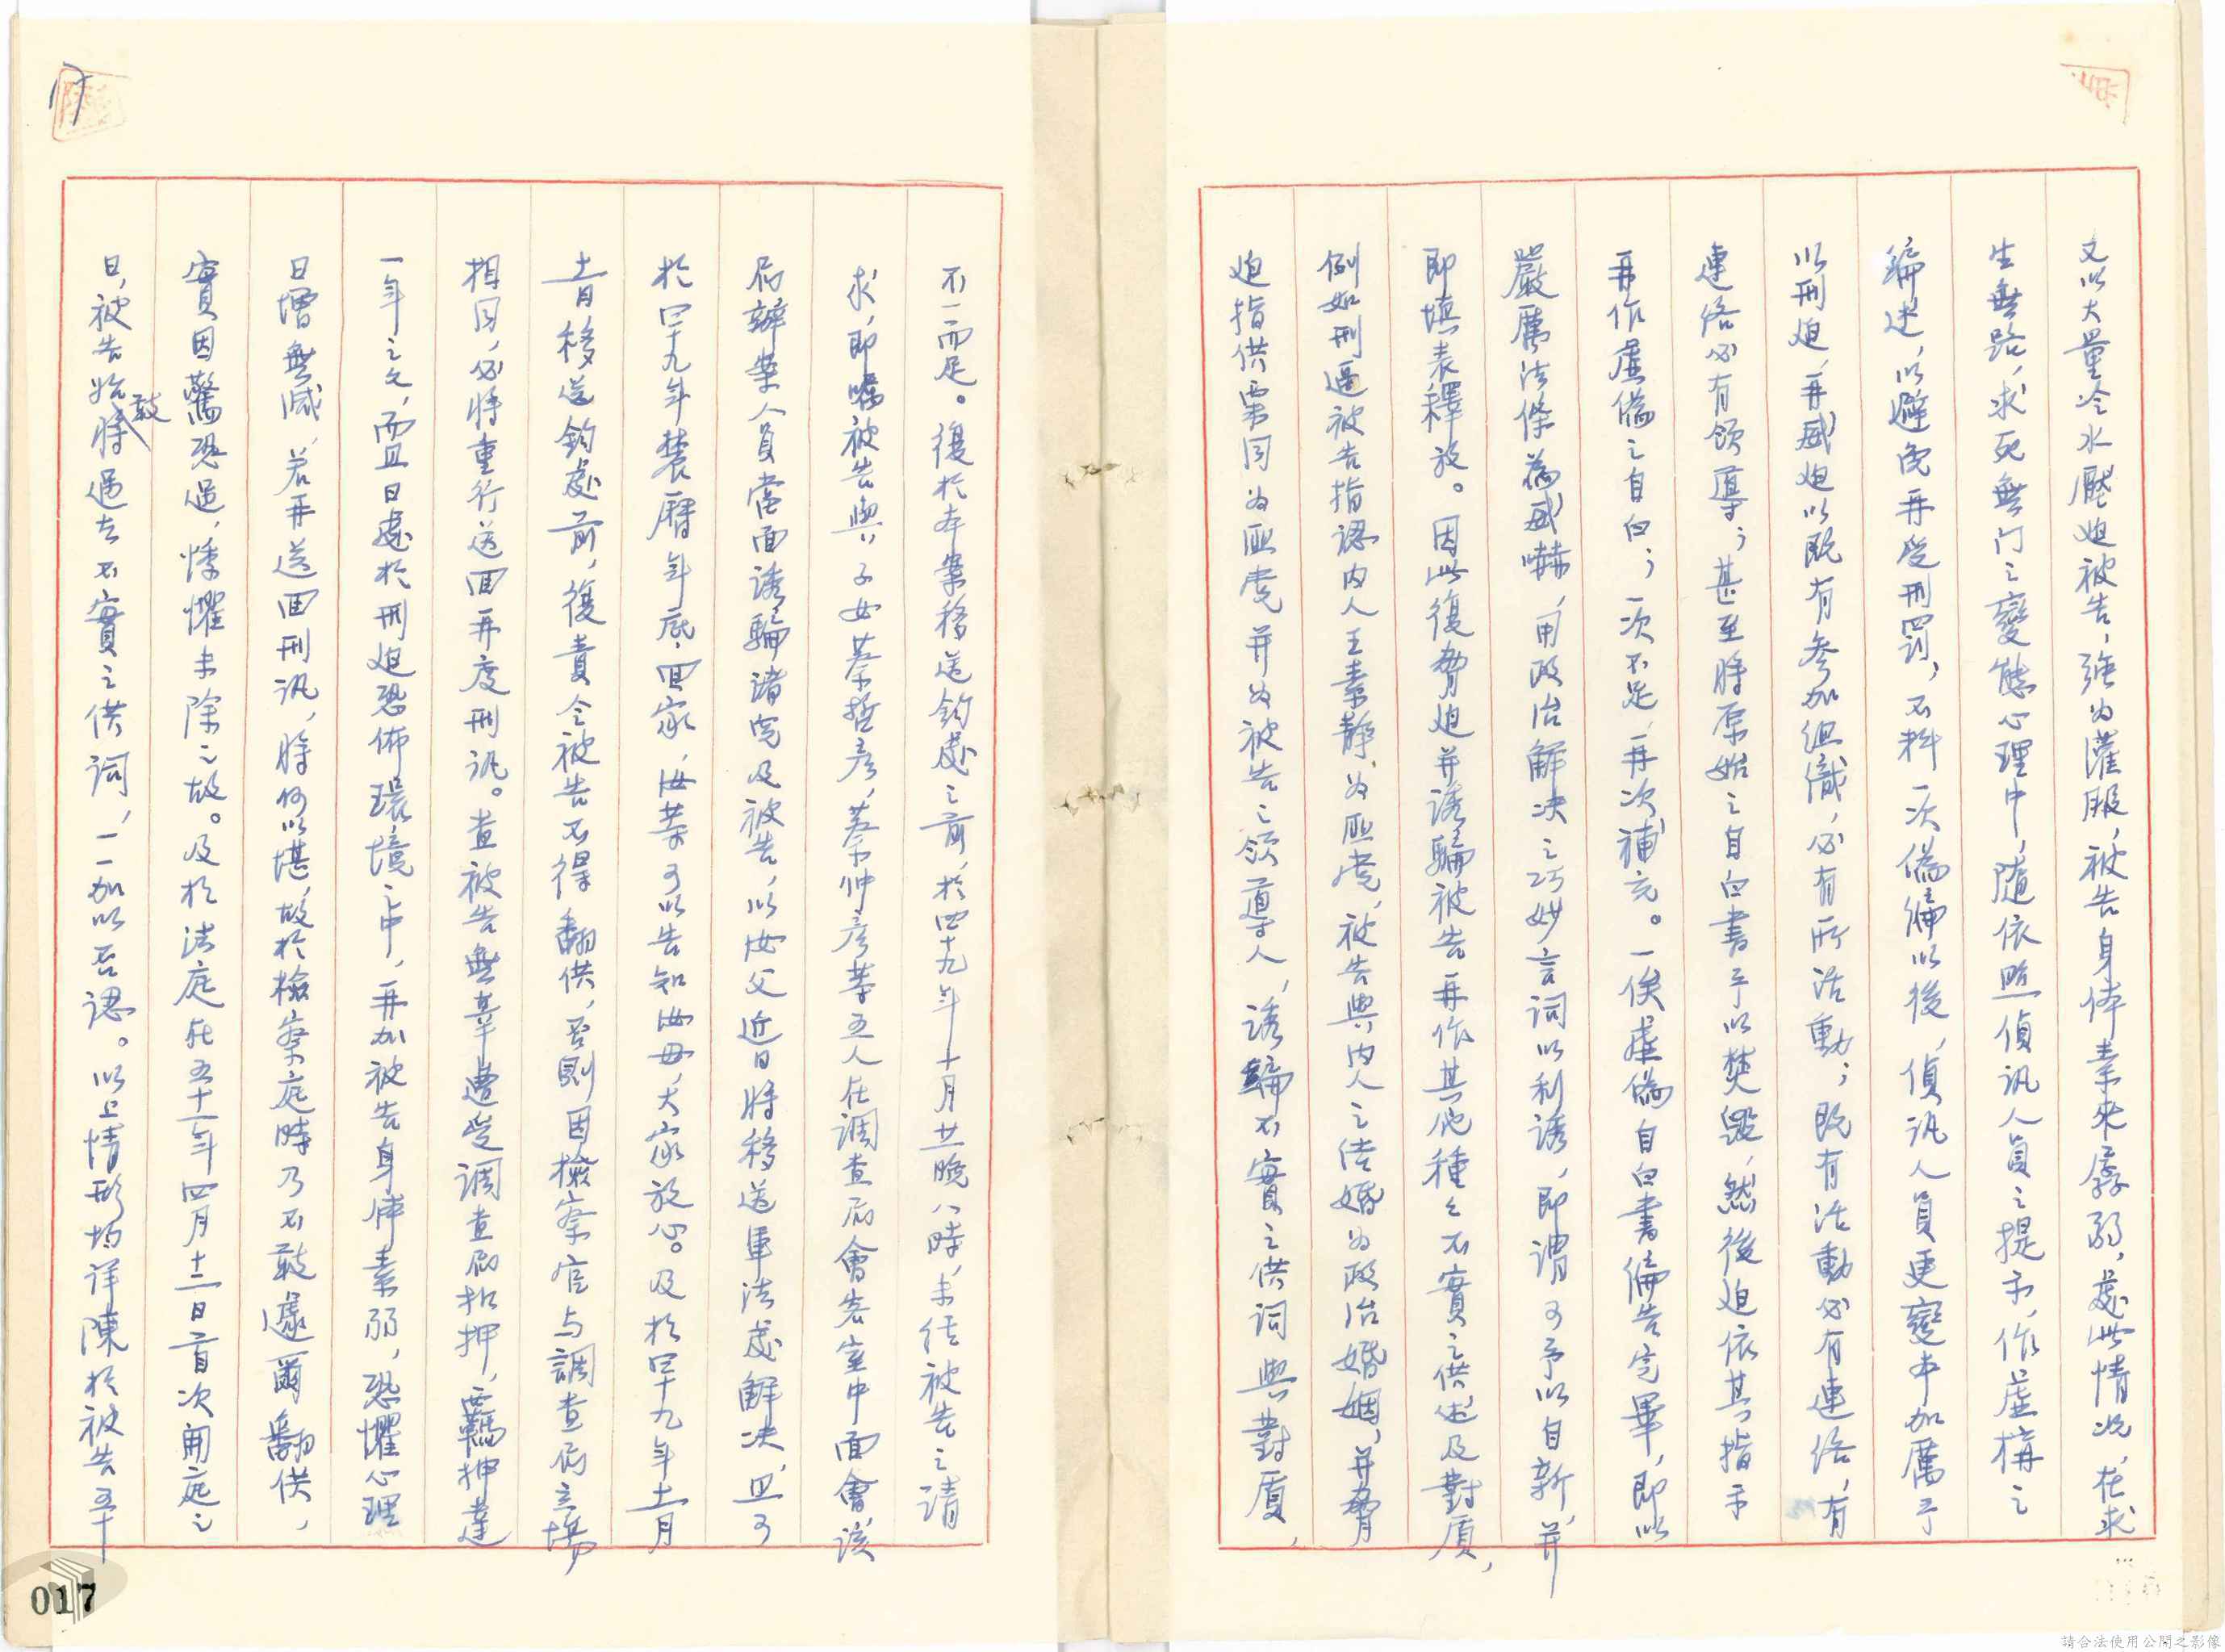 又以大量冷水壓迫被告，強為灌服，被告身体素來孱弱，處此情况，在求
生無路，求死無门之變態心理中，隨依照偵訊人員之提示，作虛構之
編述，以避免再受刑罰，不料一次偽編以後，偵訊人員更變本加厲予
以刑迫，再威迫以既有參加組織，必有所活動；既有活動必有連络，有
連络必有領導；甚至將原始之自白書予以焚毀，然後迫依其指示
再作虛偽之自白；一次不足，再次補充。一俟虛偽自白書編告完畢，即以
嚴厲法條為威嚇，用政治解决之巧妙言詞以利誘，即謂可予以自新，并
即填表釋放。因此復脅迫并誘騙被告再作其他種々不實之供述及對质，
例如刑逼被告指認内人王素静為匪諜，被告與内人之结婚為政治婚姻，并脅
迫指供 同為匪諜并為被告之領導人，誘騙不實之供詞與對质，
不一而足。復於本案移送鈞處之前，於四十九年十月廿一晚八時，未经被告之請
求，即囑被告與子女蔡哲彦，蔡仲彦等五人在調查局會客室中面會，该
局辦案人員當面誘騙諸兒及被告，以汝父近日將移送軍法處解决，且可
於四十九年農曆年底回家，汝等可以告知汝母，大家放心。及於四十九年十一月
十一日移送鈞處前，復責令被告不得翻供，否則因檢察官与調查局立場
相同，必將重行送回再度刑訊。查被告無辜遭受調查局扣押，羈押達
一年之久，而且日處於刑迫恐佈環境之中，再加被告身体素弱，恐懼心理
日增無减，若再送回刑訊，將何以堪，故於檢察庭時乃不敢遽爾翻供，
實因驚恐過，悸懼未除之故。及於法庭在五十一年四月十三日首次開庭之
日，被告始敢將過去不實之供詞，一一加以否認。以上情形均详陳於被告五十
17
017
請合法使用公開之影像